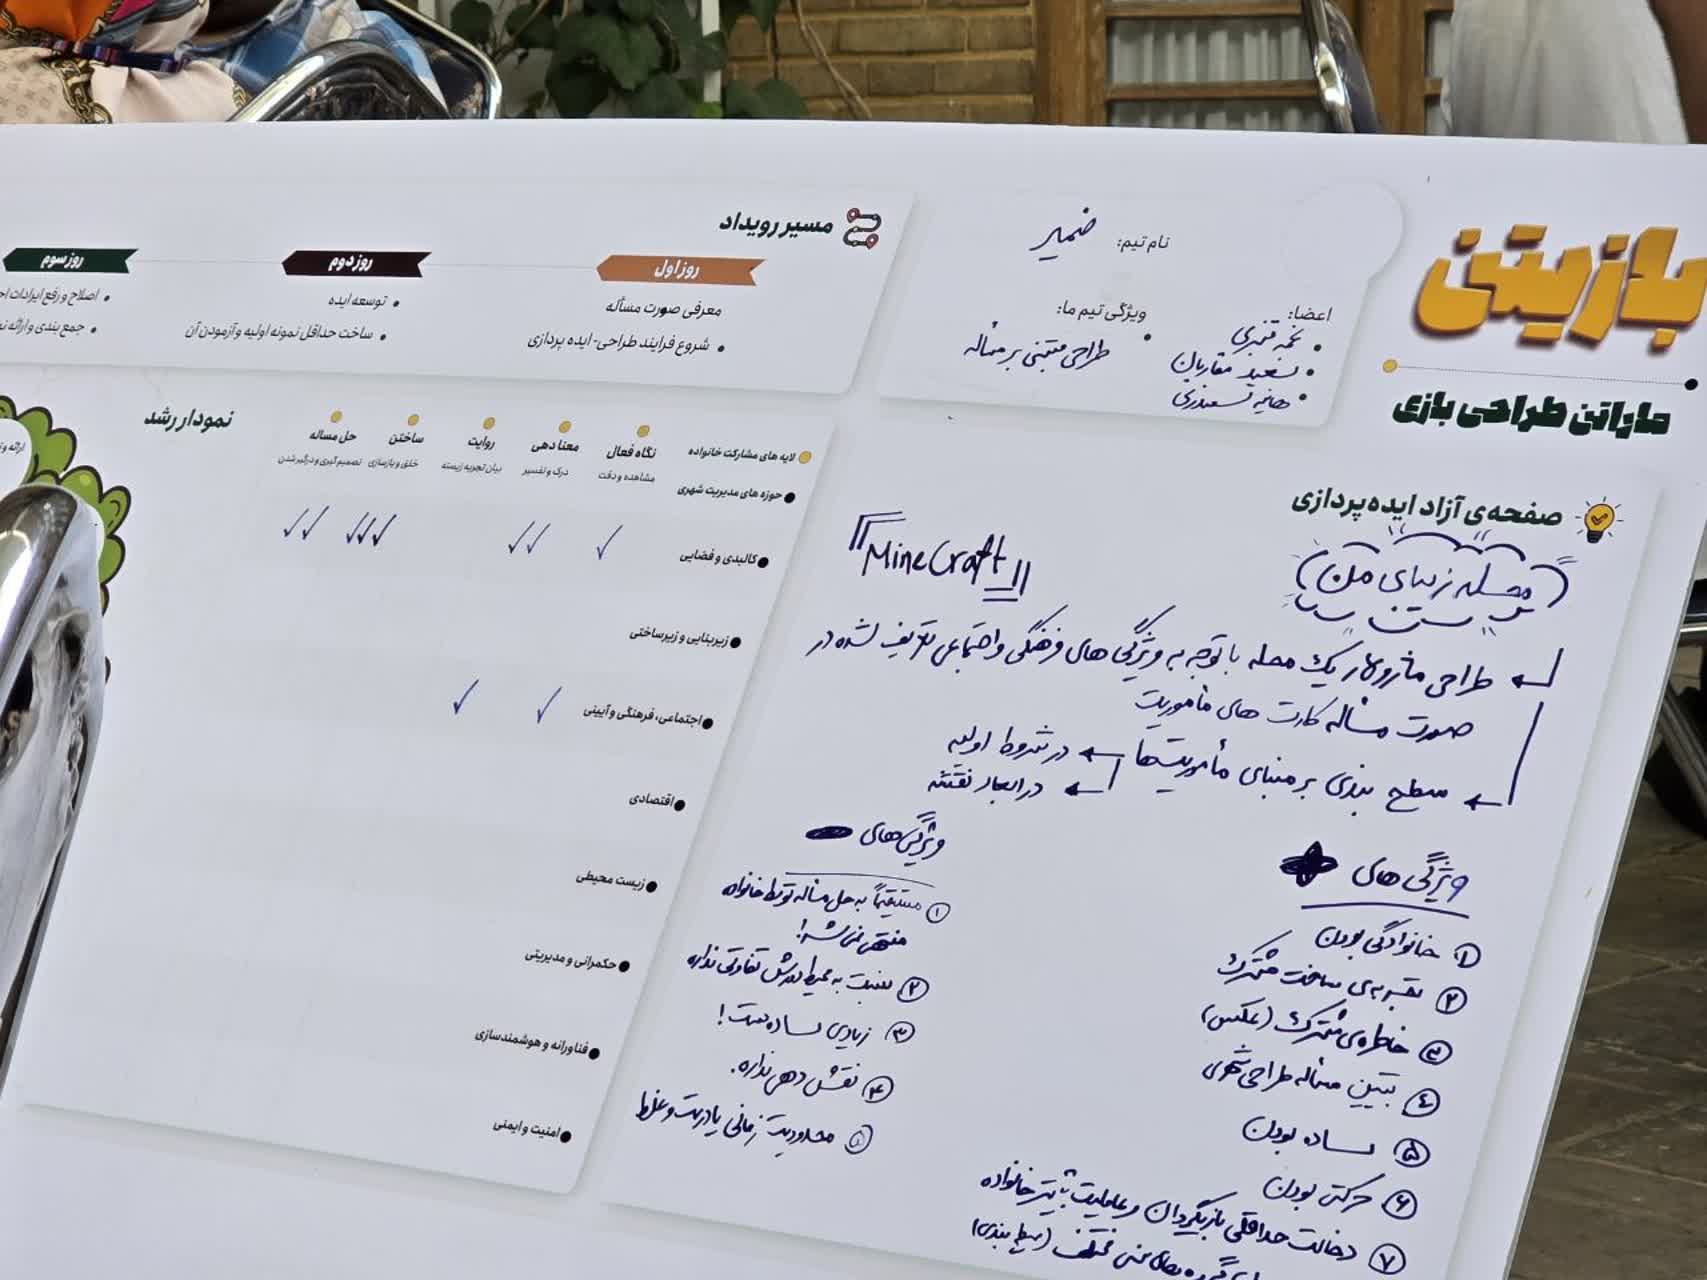 بازیتن
ماراتن طراحی بازی
نام تیم: ضمیر
اعضا:
نجمه قنبری
سعید مقاریان
هانیه سعیدزی
ویژگی تیم ما:
طراحی مبتنی بر مسأله
مسیر رویداد
روز اول
معرفی صورت مسأله
شروع فرایند طراحی- ایده پردازی
روز دوم
توسعه ایده
ساخت حداقل نمونه اولیه و آزمودن آن
روز سوم
اصلاح و رفع ایرادات
جمع بندی و ارائه
صفحه‌ی آزاد ایده‌پردازی
(محله زیبای من)
"MineCraft"
طراحی ماژولار یک محله با توجه به ویژگی های فرهنگی و اجتماعی تعریف شده در
صورت مسأله کارت های مأموریت
سطح بندی بر مبنای مأموریت‌ها
در شروط اولیه
در ابعاد نقشه
ویژگی های +
۱ خانوادگی بودن
۲ تجربه‌ی ساخت مشترک
۳ خاطره‌ی مشترک (عکس)
۴ تبیین مسأله طراحی شهری
۵ ساده بودن
۶ حرکتی بودن
۷ دخالت حداقلی بازیگردان و عاملیت بیشتر خانواده
(سطح بندی)
ویژگی‌های -
۱ مستقیماً به حل مسأله توسط خانواده
منتهی نمی‌شه!
۲ نسبت به محیط دورش تفاوتی نداره
۳ زیادی ساده ست!
۴ نقش دهی نداره.
۵ محدودیت زمانی یا درست و غلط
نمودار رشد
لایه های مشارکت خانواده
نگاه فعال
مشاهده و دقت
معنا دهی
درک و تفسیر
روایت
بیان تجربه زیسته
ساختن
خلق و بازسازی
حل مساله
تصمیم گیری و درگیر شدن
حوزه های مدیریت شهری
کالبدی و فضایی
زیربنایی و زیرساختی
اجتماعی، فرهنگی و آیینی
اقتصادی
زیست محیطی
حکمرانی و مدیریتی
فناورانه و هوشمندسازی
امنیت و ایمنی